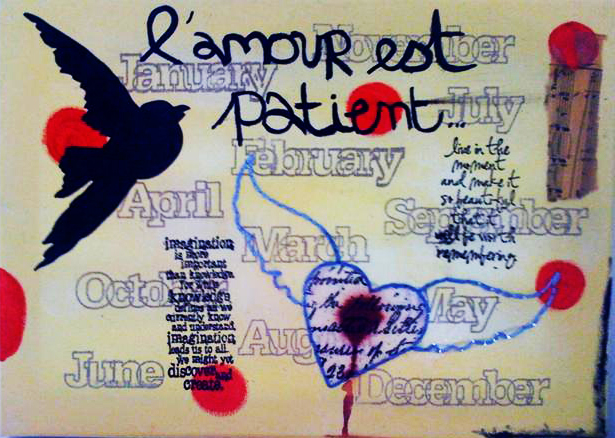 l'amour est
patient...
November
January
July
February
April
September
March
October
May
August
June
December
live in the
moment
and make it
so beautiful
that it
will be worth
remembering
imagination
is more
important
than knowledge
for while
knowledge
defines all we
currently know
and understand
imagination
leads us to all
we might yet
discover and
create.